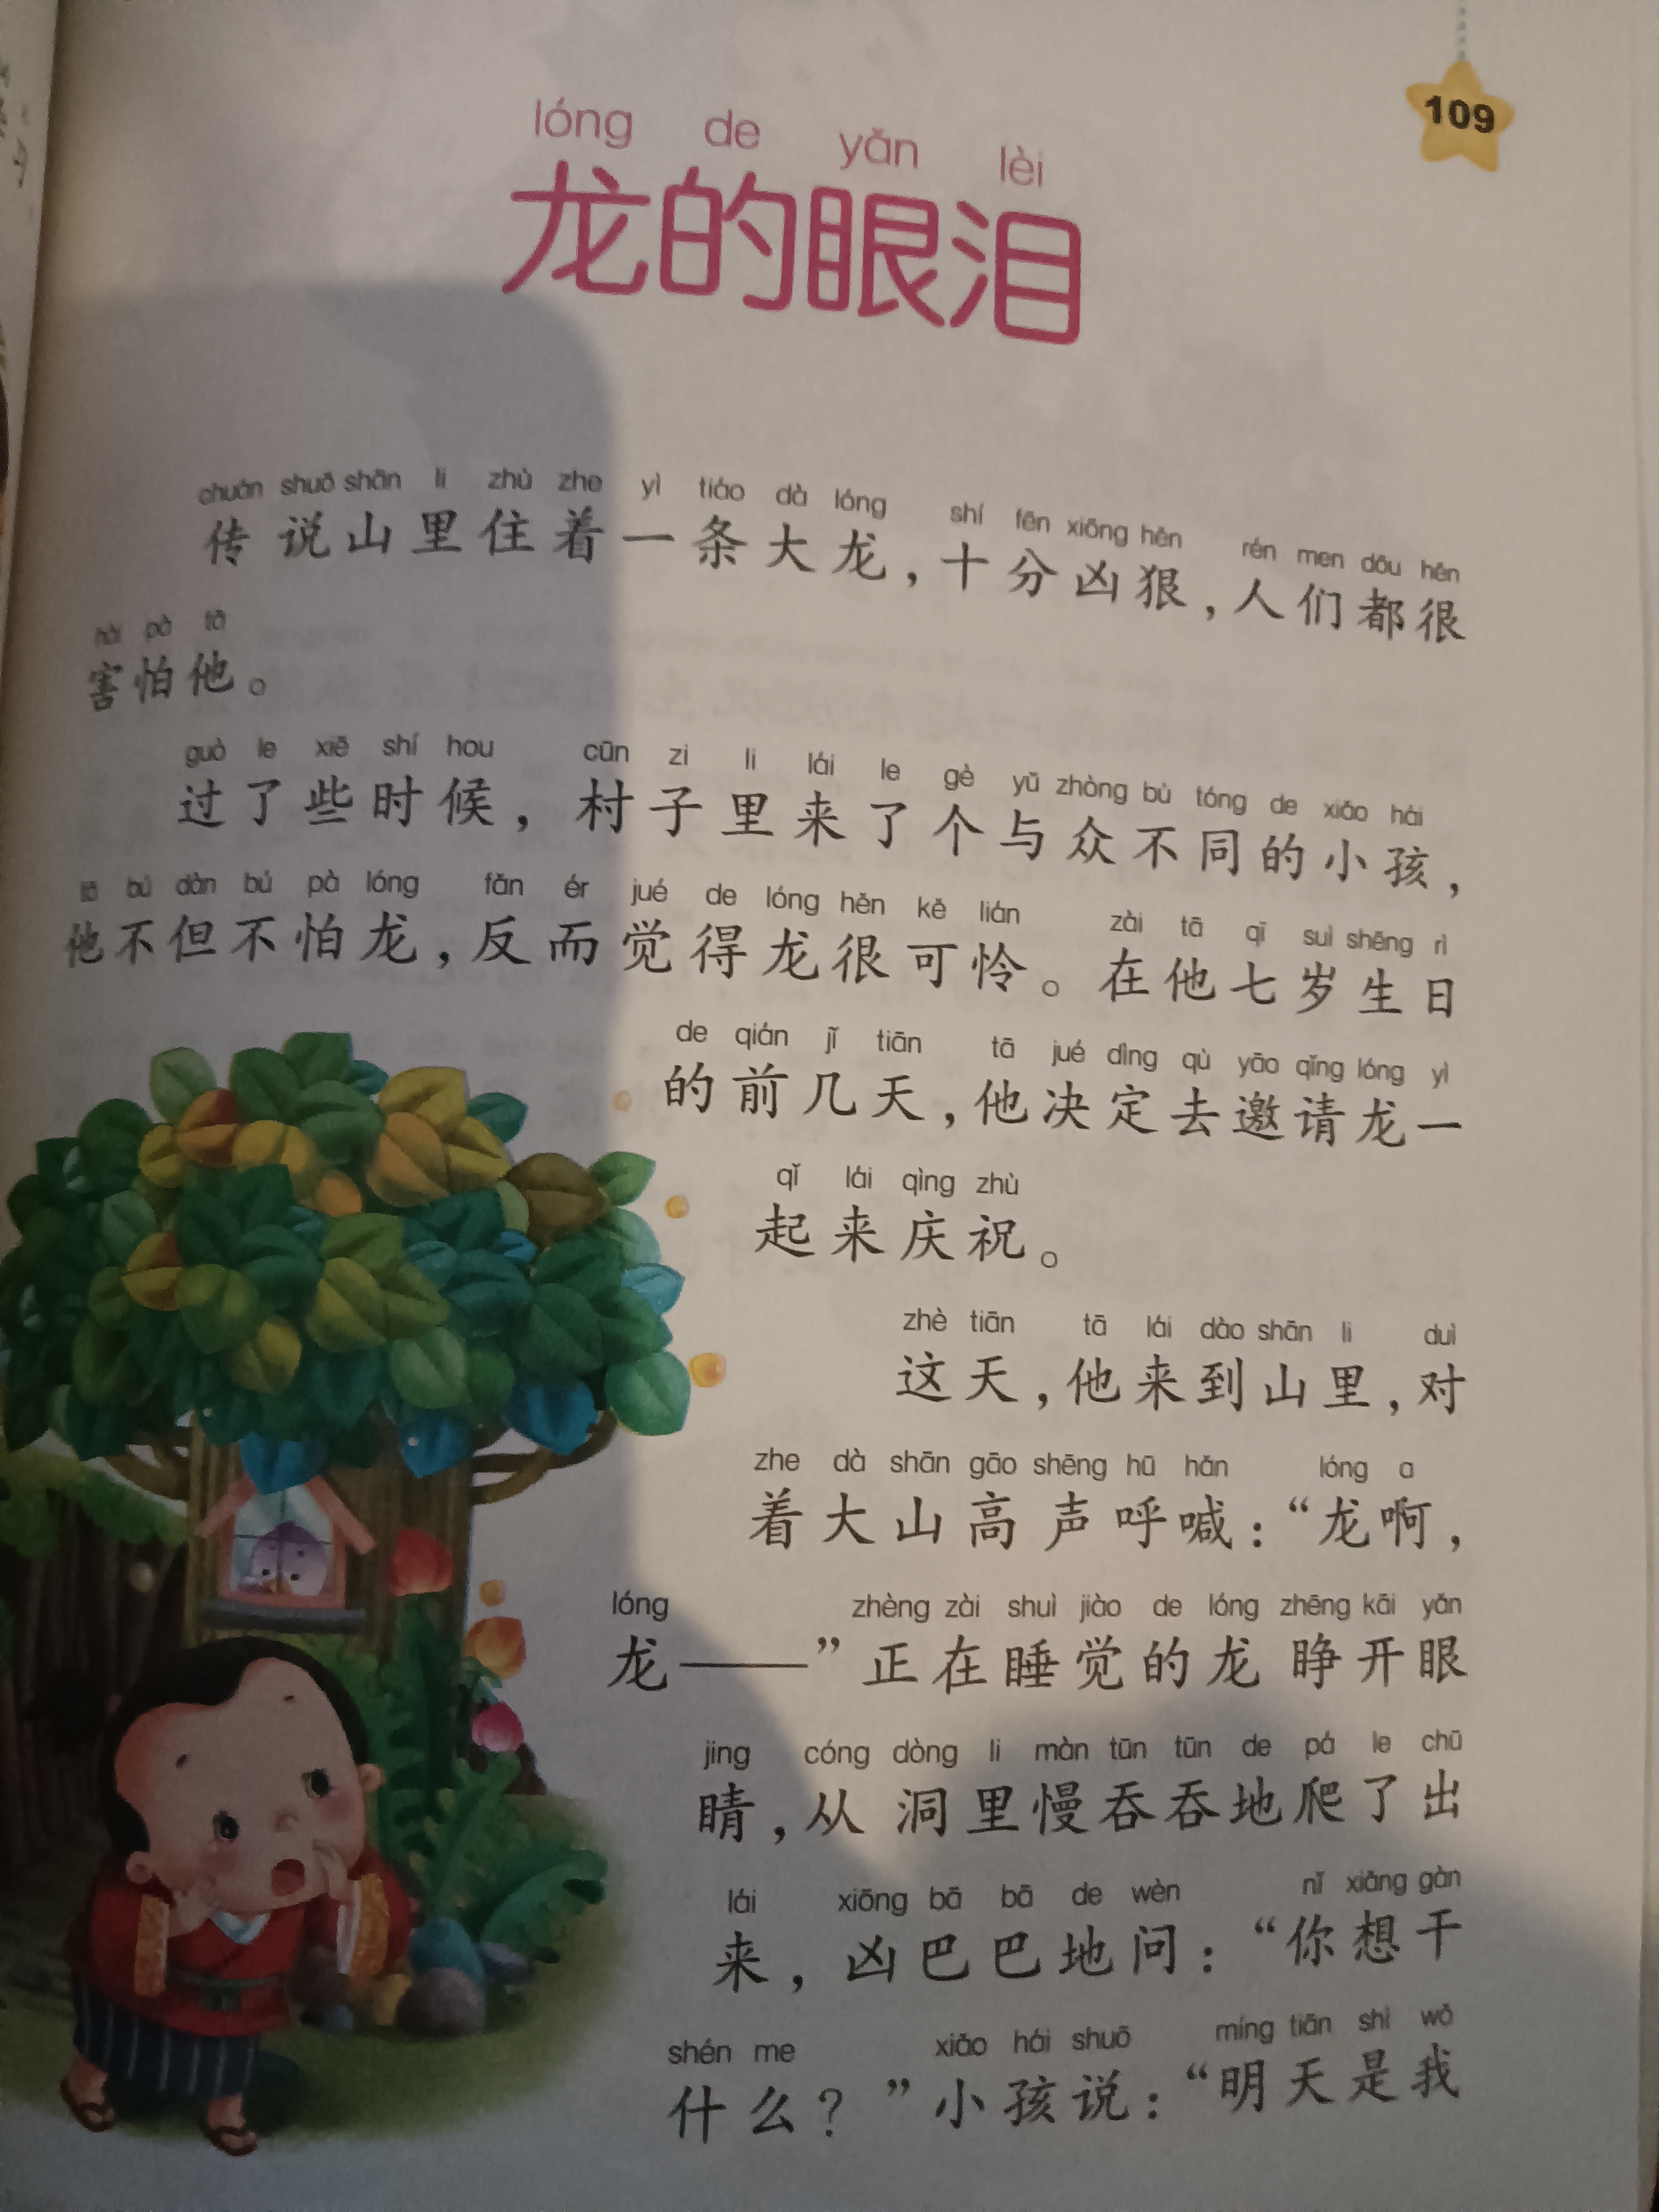 109
lóng de yǎn lèi
龙的眼泪
chuán shuō shān li zhù zhe yì tiáo dà lóng shí fēn xiōng hěn rén men dōu hěn
传说山里住着一条大龙，十分凶狠，人们都很
hài pà tā
害怕他。
guò le xiē shí hou cūn zi li lái le gè yǔ zhòng bù tóng de xiǎo hái
过了些时候，村子里来了个与众不同的小孩，
tā bú dàn bú pà lóng fǎn ér jué de lóng hěn kě lián zài tā qī suì shēng rì
他不但不怕龙，反而觉得龙很可怜。在他七岁生日
de qián jǐ tiān tā jué dìng qù yāo qǐng lóng yì
的前几天，他决定去邀请龙一
qǐ lái qìng zhù
起来庆祝。
zhè tiān tā lái dào shān li duì
这天，他来到山里，对
zhe dà shān gāo shēng hū hǎn lóng a
着大山高声呼喊：“龙啊，
lóng zhèng zài shuì jiào de lóng zhēng kāi yǎn
龙——”正在睡觉的龙睁开眼
jing cóng dòng li màn tūn tūn de pá le chū
睛，从洞里慢吞吞地爬了出
lái xiōng bā bā de wèn nǐ xiǎng gàn
来，凶巴巴地问：“你想干
shén me xiǎo hái shuō míng tiān shì wǒ
什么？”小孩说：“明天是我